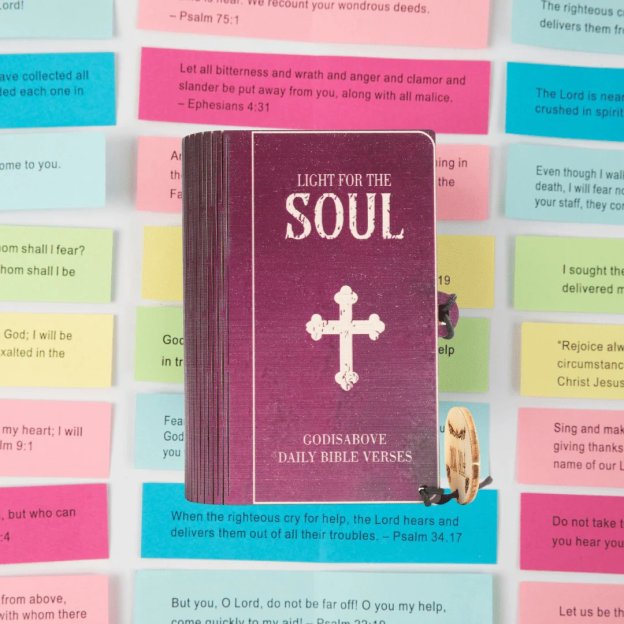 Lord!
is near. We recount your wondrous deeds.
– Psalm 75:1
The righteous c
delivers them fro
ave collected all
ded each one in
Let all bitterness and wrath and anger and clamor and
slander be put away from you, along with all malice.
– Ephesians 4:31
The Lord is near
crushed in spirit
ome to you.
ning in
the
Even though I wall
death, I will fear no
your staff, they con
hom shall I fear?
hom shall I be
19
I sought the
delivered m
God; I will be
exalted in the
God
in tr
help
"Rejoice alw
circumstanc
Christ Jesus
my heart; I will
lm 9:1
Fea
God
you
Sing and mak
giving thanks
name of our L
, but who can
:4
When the righteous cry for help, the Lord hears and
delivers them out of all their troubles. – Psalm 34.17
Do not take t
you hear you
from above,
with whom there
But you, O Lord, do not be far off! O you my help,
come quickly to my aid! – Psalm 22:19
Let us be th
LIGHT FOR THE
SOUL
GODISABOVE
DAILY BIBLE VERSES